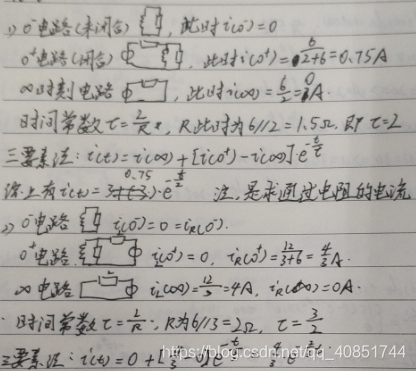 1) 0⁻电路(未闭合) , 此时i(0⁻)=0
0⁺电路(闭合) , 此时i(0⁺)=6/2+6=0.75A
∞时刻电路 , 此时i(∞)=6/2= A.
时间常数τ=L/R, R此时为6//2=1.5Ω. 即τ=2
三要素法: i(t)=i(∞)+[i(0⁺)-i(∞)]·e^-t/τ
综上有i(t)= 0.75 ·e^-t/2 注,是求通过电阻的电流
2) 0⁻电路 i(0⁻)=0=i_R(0⁻).
0⁺电路 i_L(0⁺)=0, i_R(0⁺)=12/3+6=4/3A.
∞电路 i_L(∞)=12/3=4A, i_R(∞)=0A.
时间常数τ=L/R, R为6//3=2Ω, τ=3/2
三要素法: i(t)=0+[4/3
https://blog.csdn.net/qq_40851744